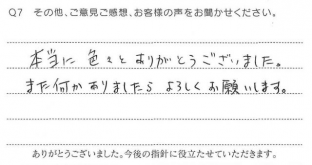 Q7 その他、ご意見ご感想、お客様の声をお聞かせください。
本当に 色々とありがとうございました。
また何かありましたら よろしくお願いします。
ありがとうございました。今後の指針に役立たせていただきます。